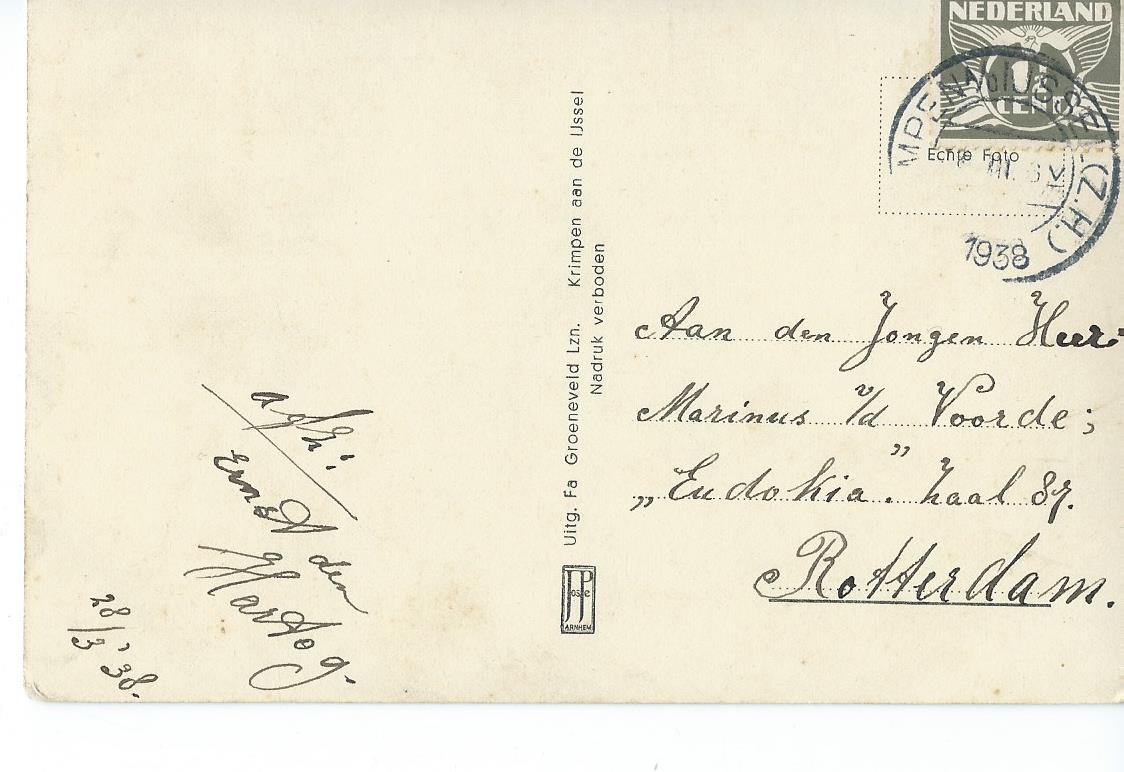 NEDERLAND
CENT
MPEN A/D IJSSEL (Z.H.)
III
1938
Echte Foto
Uitg. Fa Groeneveld Lzn. Krimpen aan de IJssel
Nadruk verboden
JosPé
ARNHEM
Aan den Jongen Heer
Marinus v/d Voorde;
„Eudokia." Zaal 87.
Rotterdam.
afz:
Ernst den
Hartog.
28/3 '38.